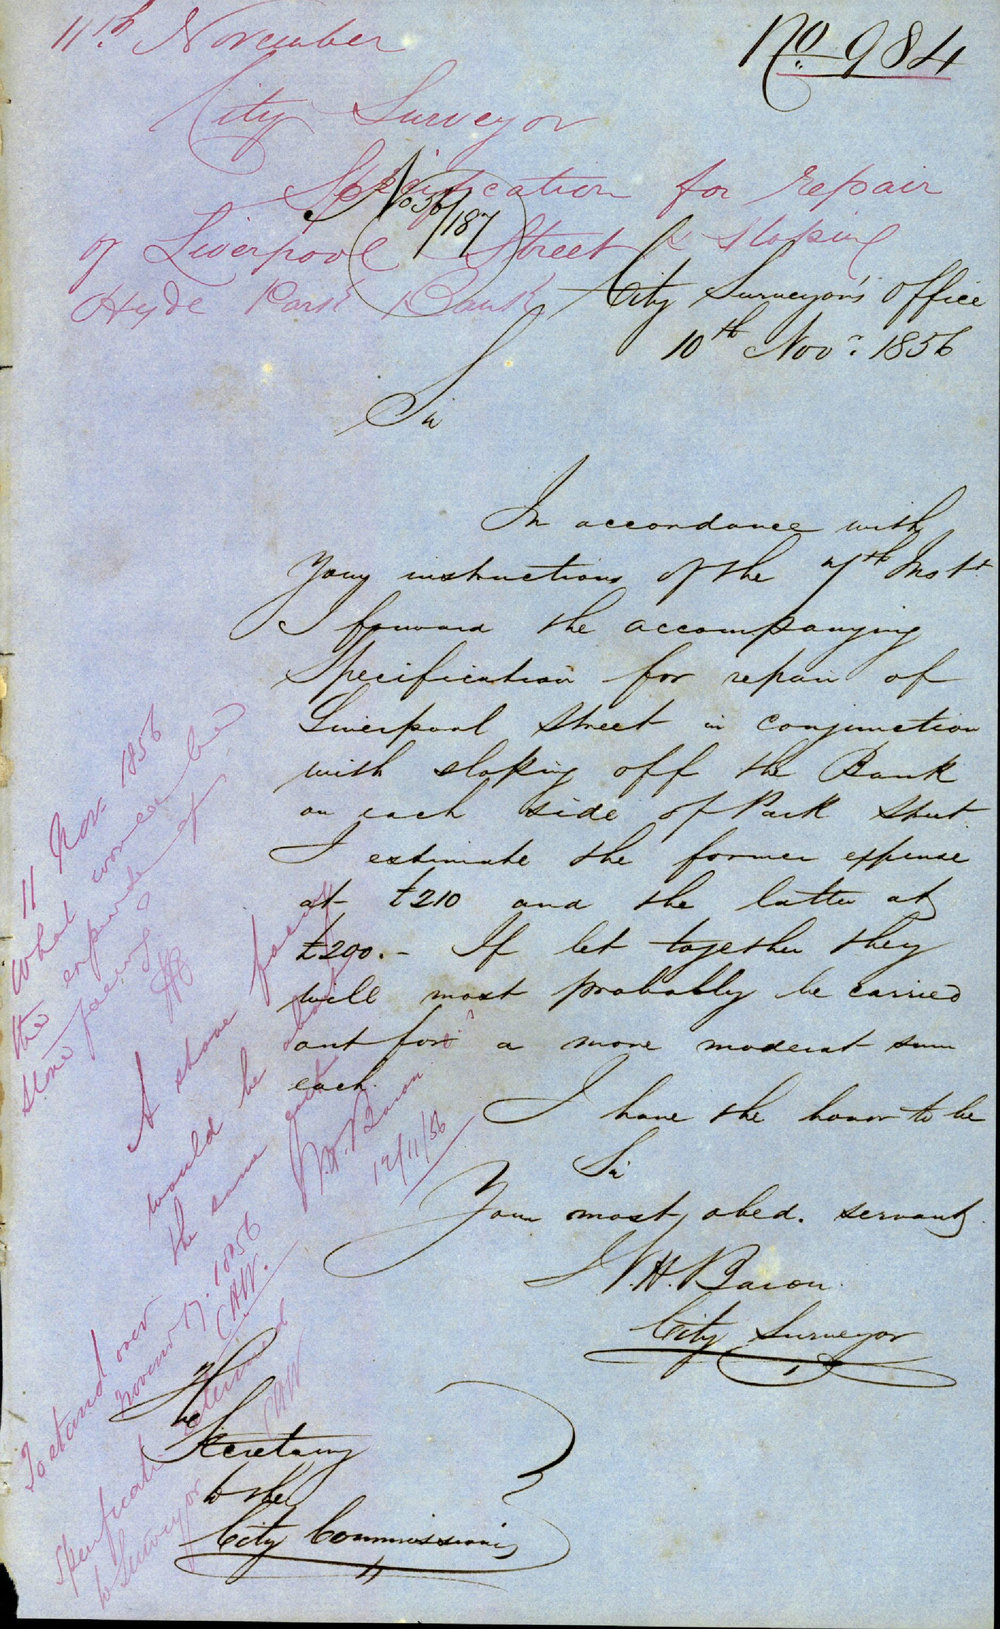 11th November
No 984
City Surveyor
Specification for repair
of Liverpool Street & sloping
Hyde Park Bank
No 56/187
City Surveyor's Office
10th Novr. 1856
Sir
In accordance with
Your instructions of the 7th Inst.
I forward the accompanying
Specification for repair of
Liverpool Street in conjunction
with sloping off the Bank
on each side of Park Street.
I estimate the former expense
at £210 and the latter at
£200.- If let together they
will most probably be carried
out for a more moderat sum
each.
I have the honor to be
Sir
Your most obed. servant
W.H. Bacon
City Surveyor
The
Secretary
to the
City Commissioners
11 Nov. 1856
What would be
the expense of
stone facing?
A stone facing
would be about
the same cost
W.H. Bacon
12/11/56
To stand over
November 17. 1856
specification returned
to Surveyor